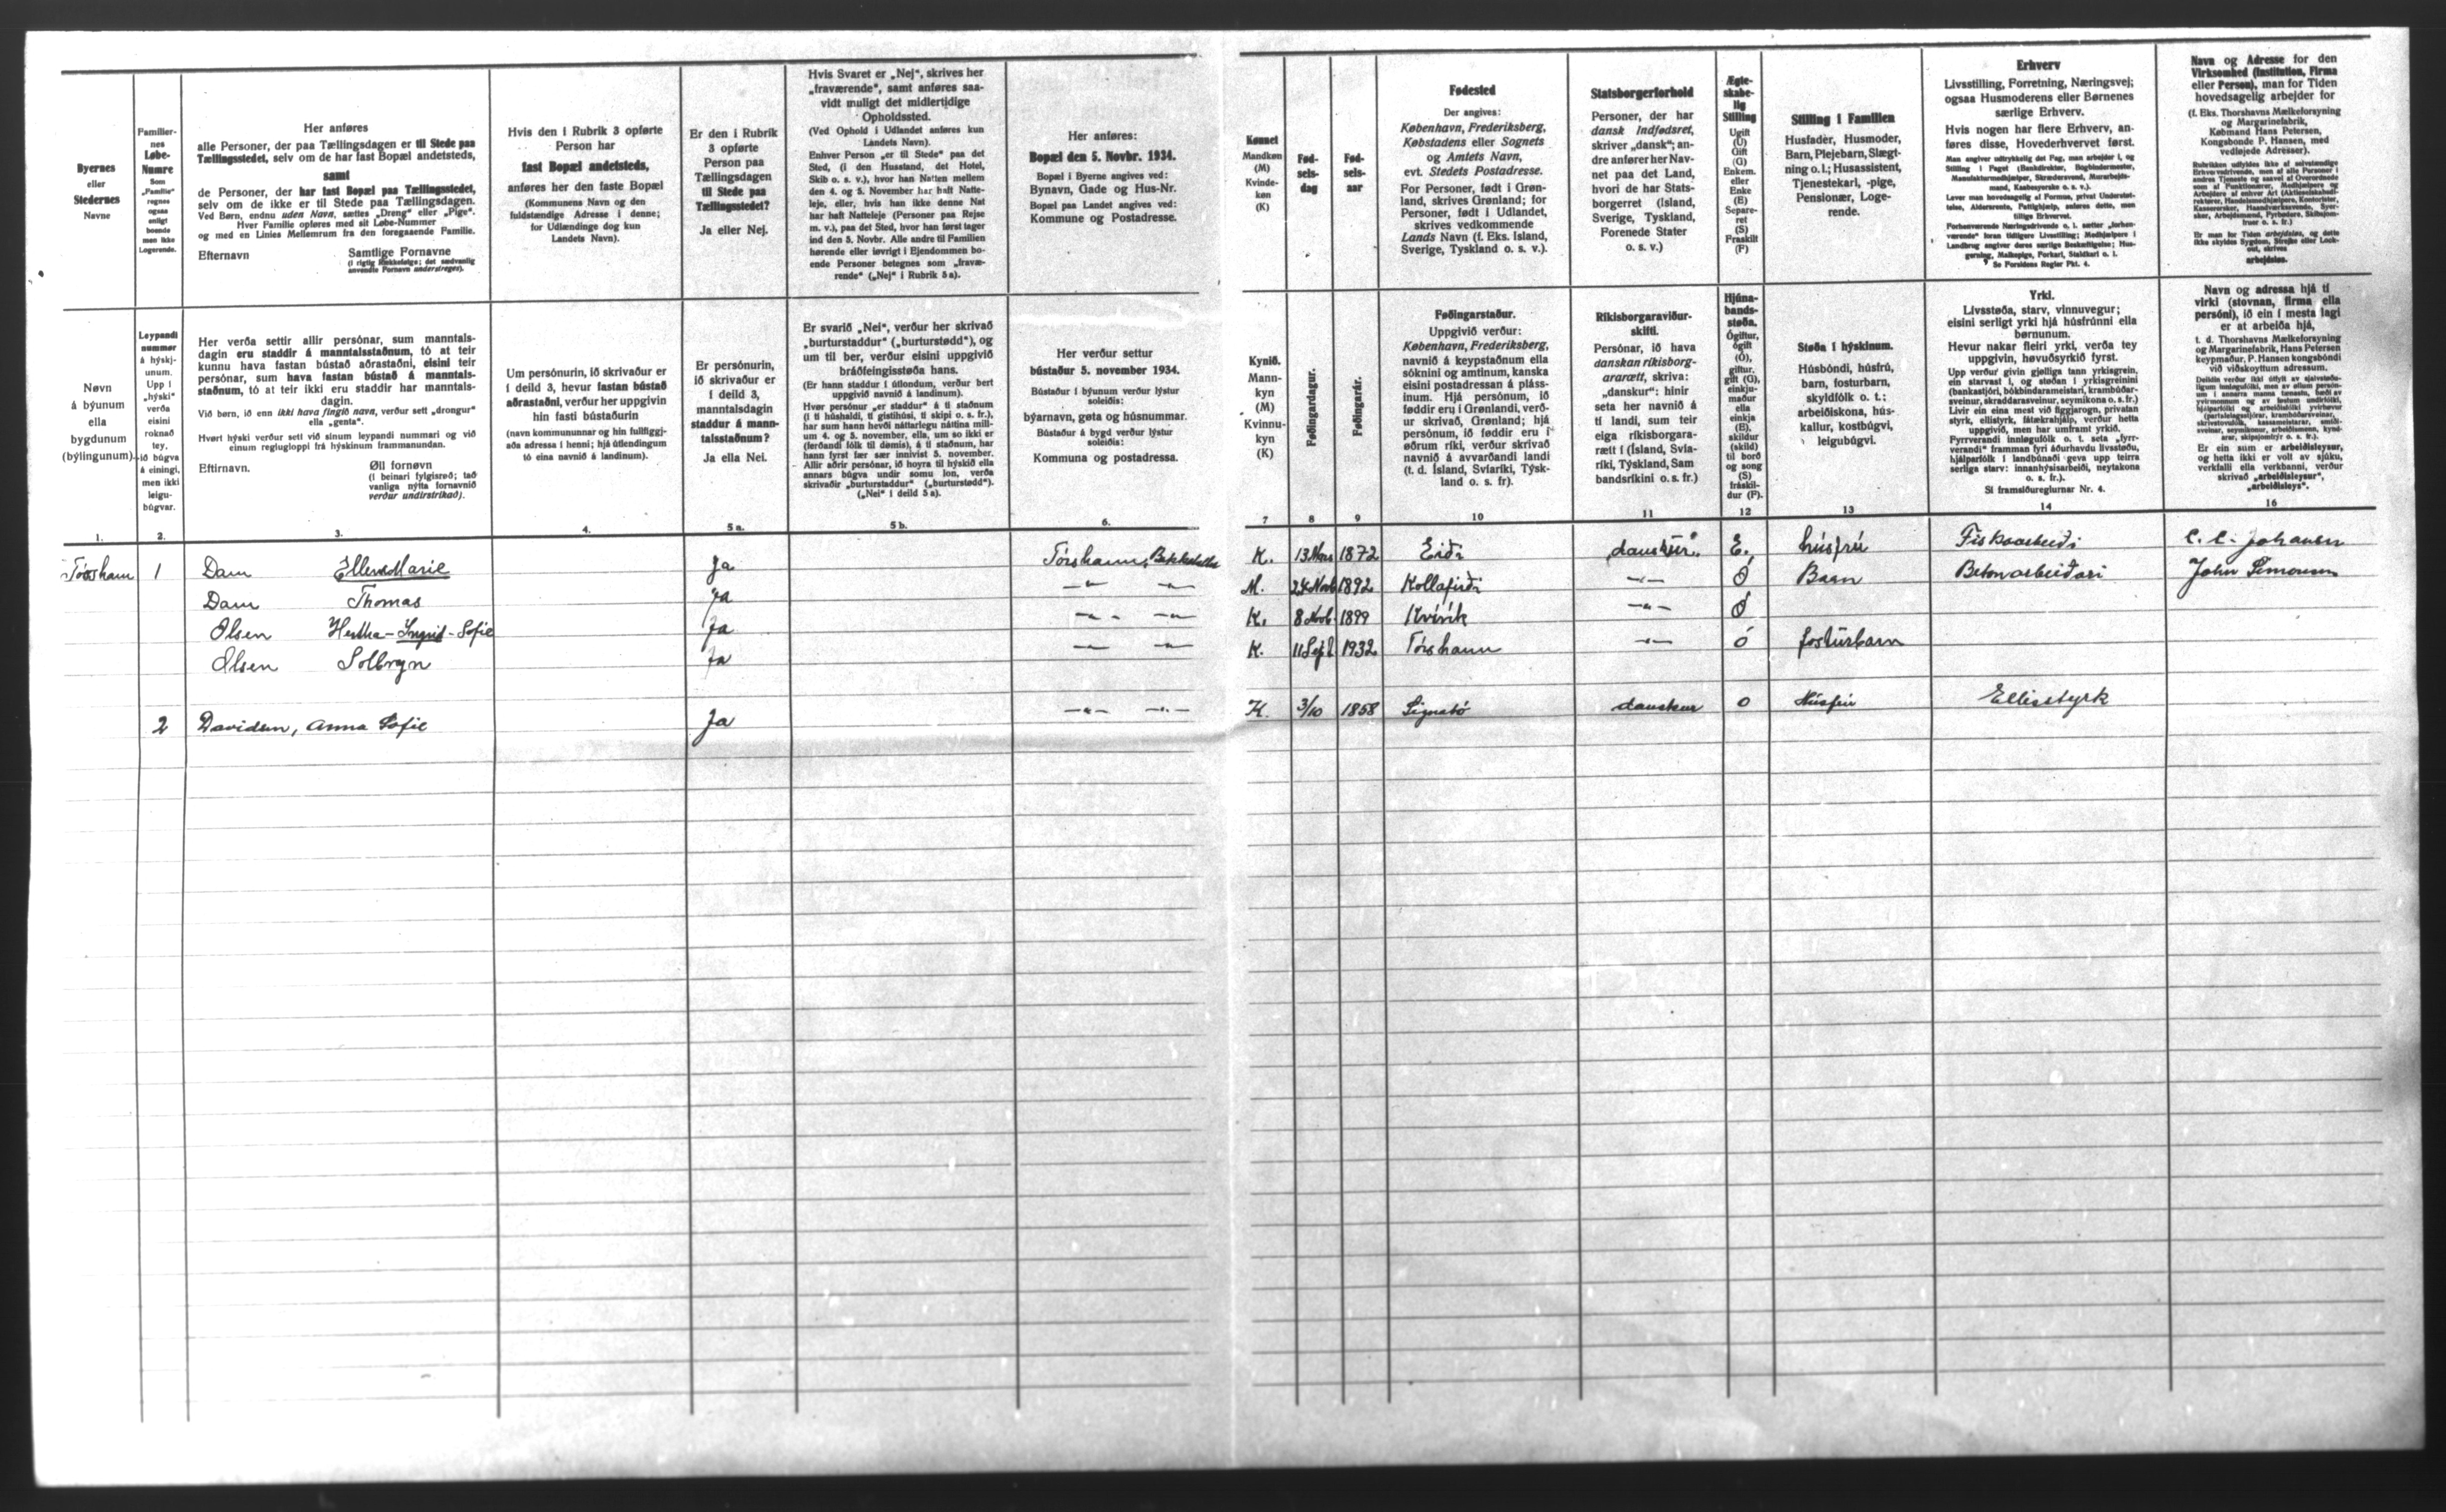 Byernes
eller
Stedernes
Navne
Familier-
nes
Løbe-
Numre
Som
„Familie“
regnes
ogsaa
enligt
boende
men ikke
Logerende.
Her anføres
alle Personer, der paa Tællingsdagen er til Stede paa
Tællingsstedet, selv om de har fast Bopæl andetsteds,
samt
de Personer, der har fast Bopæl paa Tællingsstedet,
selv om de ikke er til Stede paa Tællingsdagen.
Ved Børn, endnu uden Navn, sættes „Dreng“ eller „Pige“.
Hver Familie opføres med sit Løbe-Nummer
og med en Linies Mellemrum fra den foregaaende Familie.
Efternavn
Samtlige Fornavne
(i rigtig Rækkefølge; det sædvanlig
anvendte Fornavn understreges).
Hvis den i Rubrik 3 opførte
Person har
fast Bopæl andetsteds,
anføres her den faste Bopæl
(Kommunens Navn og den
fuldstændige Adresse i denne;
for Udlændinge dog kun
Landets Navn).
Er den i Rubrik
3 opførte
Person paa
Tællingsdagen
til Stede paa
Tællingsstedet?
Ja eller Nej.
Hvis Svaret er „Nej“, skrives her
„fraværende“, samt anføres saa-
vidt muligt det midlertidige
Opholdssted.
(Ved Ophold i Udlandet anføres kun
Landets Navn).
Enhver Person „er til Stede“ paa det
Sted, (i den Husstand, det Hotel,
Skib o. s. v.), hvor han Natten mellem
den 4. og 5. November har haft Natte-
leje, eller, hvis han ikke denne Nat
har haft Natteleje (Personer paa Rejse
m. v.), paa det Sted, hvor han først tager
ind den 5. Novbr. Alle andre til Familien
hørende eller iøvrigt i Ejendommen bo-
ende Personer betegnes som „fravæ-
rende“ („Nej“ i Rubrik 5a).
Her anføres:
Bopæl den 5. Novbr. 1934.
Bopæl i Byerne angives ved:
Bynavn, Gade og Hus-Nr.
Bopæl paa Landet angives ved:
Kommune og Postadresse.
Kønnet
Mandkøn
(M)
Kvinde-
køn
(K)
Fød-
sels-
dag
Fød-
sels-
aar
Fødested
Der angives:
København, Frederiksberg,
Købstadens eller Sognets
og Amtets Navn,
evt. Stedets Postadresse.
For Personer, født i Grøn-
land, skrives Grønland; for
Personer, født i Udlandet,
skrives vedkommende
Lands Navn (f. Eks. Island,
Sverige, Tyskland o. s. v.).
Statsborgerforhold
Personer, der har
dansk Indfødsret,
skriver „dansk“; an-
dre anfører her Nav-
net paa det Land,
hvori de har Stats-
borgerret (Island,
Sverige, Tyskland,
Forenede Stater
o. s. v.)
Ægte-
skabe-
lig
Stilling
Ugift
(U)
Gift
(G)
Enkem.
eller
Enke
(E)
Separe-
ret
(S)
Fraskilt
(F)
Stilling i Familien
Husfader, Husmoder,
Barn, Plejebarn, Slægt-
ning o. l.; Husassistent,
Tjenestekarl, -pige,
Pensionær, Loge-
rende.
Erhverv
Livsstilling, Forretning, Næringsvej;
ogsaa Husmoderens eller Børnenes
særlige Erhverv.
Hvis nogen har flere Erhverv, an-
føres disse, Hovederhvervet først.
Man angiver udtrykkelig det Fag, man arbejder i, og
Stilling i Faget (Bankdirektør, Bogbindermester,
Manufakturmedhjælper, Skrædersvend, Murarbejds-
mand, Kasbesyerske o. s. v.).
Lever man hovedsagelig af Formue, privat Understøt-
telse, Aldersrente, Fattighjælp, anføres dette, men
tillige Erhvervet.
Forhenværende Næringsdrivende o. l. sætter „forhen-
værende“ foran tidligere Livsstilling; Medhjælpere i
Landbrug angiver deres særlige Beskæftigelse; Hus-
gerning, Malkepige, Forkarl, Staldkarl o. l.
Se Forsidens Regler Pkt. 4.
Navn og Adresse for den
Virksomhed (Institution, Firma
eller Person), man for Tiden
hovedsagelig arbejder for
(f. Eks. Thorshavns Mælkeforsyning
og Margarinefabrik,
Købmand Hans Petersen,
Kongsbonde P. Hansen, med
vedføjede Adresser).
Er man for Tiden arbejdsløs, og dette
ikke skyldes Sygdom, Strejke eller Lock-
out, skrives
arbejdsløs.
Nøvn
á býunum
ella
bygdunum
(býlingunum).
Leypandi
nummer
á hýskj-
unum.
Upp í
„hýski“
verða
eisini
roknað
tey,
ið búgva
á einingi,
men ikki
leigu-
búgvar.
Her verða settir allir persónar, sum manntals-
dagin eru staddir á manntalsstaðnum, tó at teir
kunnu hava fastan bústað aðrastaðni, eisini teir
persónar, sum hava fastan bústað á manntals-
staðnum, tó at teir ikki eru staddir har manntals-
dagin.
Við børn, ið enn ikki hava fingið navn, verður sett „drongur“
ella „genta“.
Hvørt hýski verður sett við sínum leypandi nummari og við
einum regluglopp​i frá hýskinum frammanundan.
Eftirnavn.
Øll fornøvn
(í beinari fylgisrøð; tað
vanliga nýtta fornavnið
verður undirstrikað).
Um persónurin, ið skrivaður er
í deild 3, hevur fastan bústað
aðrastaðni, verður her uppgivin
hin fasti bústaðurin
(navn kommununnar og hin fullfíggj-
aða adressa í henni; hjá útlendingum
tó eina navnið á landinum).
Er persónurin,
ið skrivaður er
í deild 3,
manntalsdagin
staddur á mann-
talsstaðnum?
Ja ella Nei.
Er svarið „Nei“, verður her skrivað
„burturstaddur“ („burturstødd“), og
um til ber, verður eisini uppgivið
bráðfeingisstøða hans.
(Er hann staddur í útlondum, verður bert
uppgivið navnið á landinum).
Hvør persónur „er staddur“ á tí staðnum
(í tí húshaldi, tí gistihúsi, tí skipi o. s. fr.),
har sum hann hevði náttarlegu náttina mill-
um 4. og 5. november, ella, um so ikki er
(ferðandi fólk til dømis), á tí staðnum, har
hann fyrst fær sær innivist 5. november.
Allir aðrir persónar, ið hoyra til hýskið ella
annars búgva undir somu lon, verða
skrivaðir „burturstaddur“ („burturstødd“).
(„Nei“ í deild 5 a).
Her verður settur
bústaður 5. november 1934.
Bústaður í býunum verður lýstur
soleiðis:
býarnavn, gøta og húsnummar.
Bústaður á bygd verður lýstur
soleiðis:
Kommuna og postadressa.
Kynið.
Mann-
kyn
(M)
Kvinnu-
kyn
(K)
Føðingardagur.
Føðingarár.
Føðingarstaður.
Uppgivið verður:
København, Frederiksberg,
navnið á keypstaðnum ella
sóknini og amtinum, kanska
eisini postadressan á pláss-
inum. Hjá persónum, ið
føddir eru í Grønlandi, verð-
ur skrivað, Grønland; hjá
persónum, ið føddir eru í
øðrum ríki, verður skrivað
navnið á avvarðandi landi
(t. d. Ísland, Svíaríki, Týsk-
land o. s. fr).
Ríkisborgaraviður-
skifti.
Persónar, ið hava
danskan ríkisborg-
ararætt, skriva:
„danskur“; hinir
seta her navnið á
tí landi, sum teir
eiga ríkisborgara-
rætt í (Ísland, Svía-
ríki, Týskland, Sam
bandsríkini o. s. fr.)
Hjúna-
bands-
støða.
Ógiftur,
ógift
(Ó),
giftur,
gift (G),
einkju-
maður
ella
einkja
(E),
skildur
(skild)
til borð
og song
(S)
fráskil-
dur (F).
Støða í hýskinum.
Húsbóndi, húsfrú,
barn, fosturbarn,
skyldfólk o. t.;
arbeiðiskona, hús-
kallur, kostbúgvi,
leigubúgvi.
Yrki.
Livsstøða, starv, vinnuvegur;
eisini serligt yrki hjá húsfrúnni ella
børnunum.
Hevur nakar fleiri yrki, verða tey
uppgivin, høvuðsyrkið fyrst.
Upp verður givin gjølliga tann yrkisgrein,
ein starvast í, og støðan í yrkisgreinini
(bankastjóri, bókbindarameistari, krambúðar-
sveinur, skraddarasveinur, seymikona o. s. fr.)
Livir ein eina mest við fíggjarogn, privatan
styrk, ellistyrk, fátækrahjálp, verður hetta
uppgivið, men har umframt yrkið.
Fyrrverandi innløgufólk o. t. seta „fyrr-
verandi“ framman fyri áðurhavdu livsstøðu,
hjálparfólk í landbúnaði geva upp teirra
serliga starv: innanhýsisarbeiði, neytakona
o. s. fr.).
Sí framsíðureglurnar Nr. 4.
Navn og adressa hjá tí
virki (stovnan, firma ella
persóni), ið ein í mesta lagi
er at arbeiða hjá,
t. d. Thorshavns Mælkeforsyning
og Margarinefabrik, Hans Petersen
keypmaður, P. Hansen kongsbóndi
við viðskoyttum adressum.
Er ein sum er arbeiðisleysur,
og hetta ikki er volt av sjúku,
verkfalli ella verkbanni, verður
skrivað „arbeiðisleysur“,
„arbeiðisleys“.
1. 2. 3. 4. 5 a. 5 b. 6. 7 8 9 10 11 12 13 14 16
Tórshavn 1 Dam Ellen Marie Ja Tórshavn, K. 13 Mars 1872 Eiði danskur. E. húsfrú Fiskaarbeiði C. C. Johansen
Dam Thomas Ja -"- -"- M. 24 Novb 1892 Kollafirði -"- Ó Barn Betonarbeiðari John Simonsen
Olsen Hertha-Ingrid-Sofie Ja -"- -"- K. 8 Novb 1899 Kvívík -"- Ó
Olsen Solbryn Ja -"- -"- K. 11 Sept 1932 Tórshavn -"- ó fosturbarn
2 Davidsen, Anna Sofie Ja -"- -"- K. 3/10 1858 Signabó danskur o Húsfrú Ellisstyrk